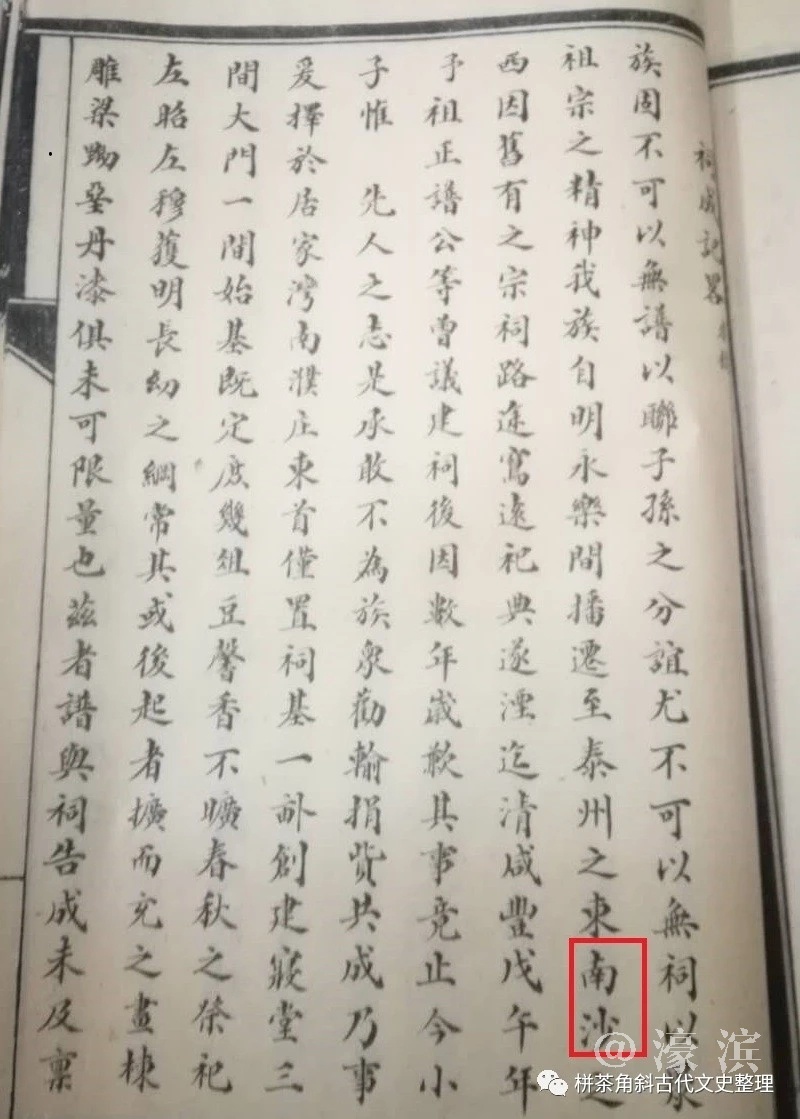 祠成記畧
族固不可以無譜以聯子孫之分誼尤不可以無祠以
祖宗之精神我族自明永樂間播遷至泰州之東南沙之
西因舊有之宗祠路途寫遠祀典遂湮迄清咸豐戊午年
予祖正譜公等曾議建祠後因數年歲歉其事竟止今小
子惟 先人之志是承敢不為族衆勸輸捐貲共成乃事
爰擇於居家灣南濮庄東首僅置祠基一所創建寢堂三
間大門一間始基既定庶幾俎豆馨香不曠春秋之祭祀
左昭左穆獲明長幼之綱常其或後起者擴而充之畫棟
雕梁黝堊丹漆俱未可限量也茲者譜與祠告成未及稟
@濠滨
栟茶角斜古代文史整理